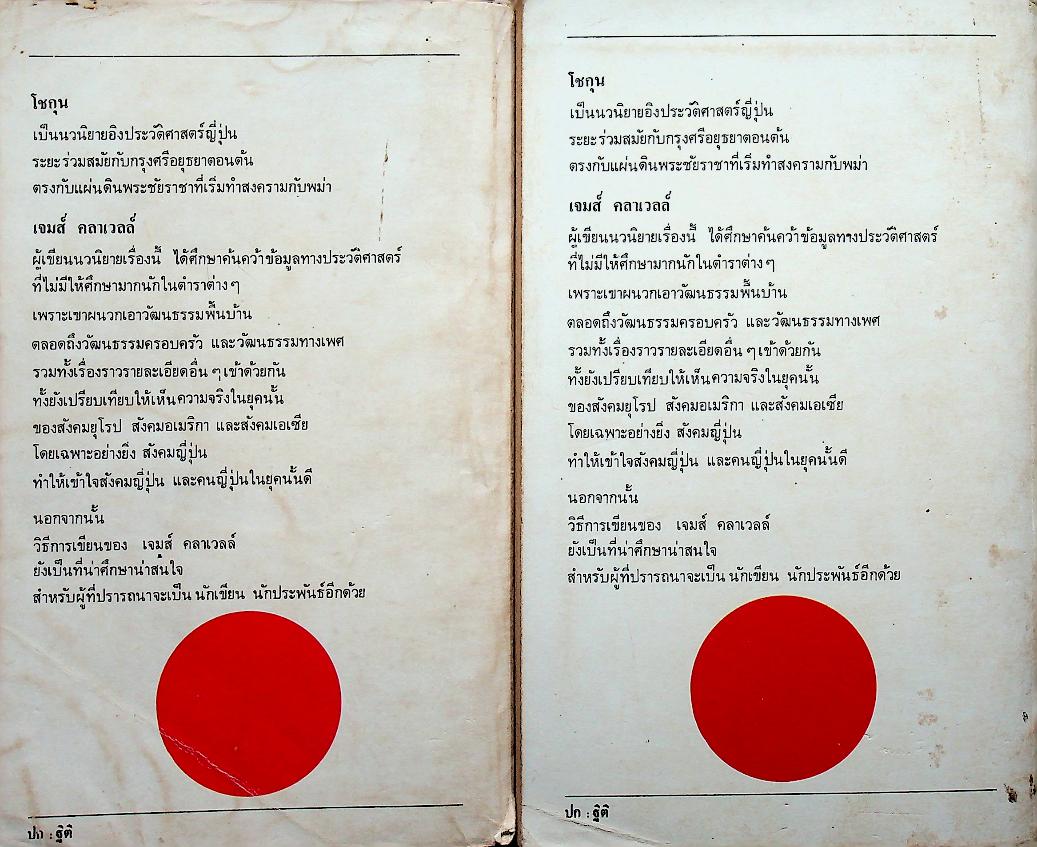 โชกุน
เป็นนวนิยายอิงประวัติศาสตร์ญี่ปุ่น
ระยะร่วมสมัยกับกรุงศรีอยุธยาตอนต้น
ตรงกับแผ่นดินพระชัยราชาที่เริ่มทำสงครามกับพม่า
เจมส์ คลาเวลล์
ผู้เขียนนวนิยายเรื่องนี้ ได้ศึกษาค้นคว้าข้อมูลทางประวัติศาสตร์
ที่ไม่มีให้ศึกษามากนักในตำราต่าง ๆ
เพราะเขาผนวกเอาวัฒนธรรมพื้นบ้าน
ตลอดถึงวัฒนธรรมครอบครัว และวัฒนธรรมทางเพศ
รวมทั้งเรื่องราวรายละเอียดอื่น ๆ เข้าด้วยกัน
ทั้งยังเปรียบเทียบให้เห็นความจริงในยุคนั้น
ของสังคมยุโรป สังคมอเมริกา และสังคมเอเซีย
โดยเฉพาะอย่างยิ่ง สังคมญี่ปุ่น
ทำให้เข้าใจสังคมญี่ปุ่น และคนญี่ปุ่นในยุคนั้นดี
นอกจากนั้น
วิธีการเขียนของ เจมส์ คลาเวลล์
ยังเป็นที่น่าศึกษาน่าสนใจ
สำหรับผู้ที่ปรารถนาจะเป็น นักเขียน นักประพันธ์อีกด้วย
ปก : ฐิติ
โชกุน
เป็นนวนิยายอิงประวัติศาสตร์ญี่ปุ่น
ระยะร่วมสมัยกับกรุงศรีอยุธยาตอนต้น
ตรงกับแผ่นดินพระชัยราชาที่เริ่มทำสงครามกับพม่า
เจมส์ คลาเวลล์
ผู้เขียนนวนิยายเรื่องนี้ ได้ศึกษาค้นคว้าข้อมูลทางประวัติศาสตร์
ที่ไม่มีให้ศึกษามากนักในตำราต่าง ๆ
เพราะเขาผนวกเอาวัฒนธรรมพื้นบ้าน
ตลอดถึงวัฒนธรรมครอบครัว และวัฒนธรรมทางเพศ
รวมทั้งเรื่องราวรายละเอียดอื่น ๆ เข้าด้วยกัน
ทั้งยังเปรียบเทียบให้เห็นความจริงในยุคนั้น
ของสังคมยุโรป สังคมอเมริกา และสังคมเอเซีย
โดยเฉพาะอย่างยิ่ง สังคมญี่ปุ่น
ทำให้เข้าใจสังคมญี่ปุ่น และคนญี่ปุ่นในยุคนั้นดี
นอกจากนั้น
วิธีการเขียนของ เจมส์ คลาเวลล์
ยังเป็นที่น่าศึกษาน่าสนใจ
สำหรับผู้ที่ปรารถนาจะเป็น นักเขียน นักประพันธ์อีกด้วย
ปก : ฐิติ